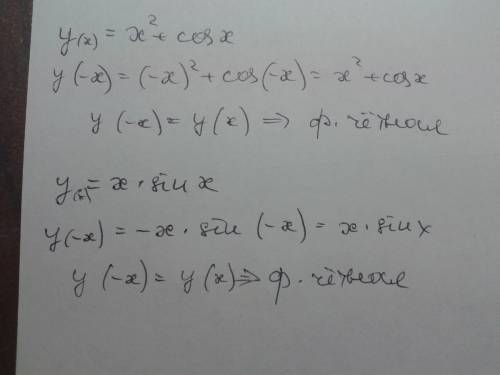 y(x) = x² + cos x
y(-x) = (-x)² + cos(-x) = x² + cos x
y(-x) = y(x) ⇒ ф. чётная
y(x) = x · sin x
y(-x) = -x · sin (-x) = x · sin x
y(-x) = y(x) ⇒ ф. чётная